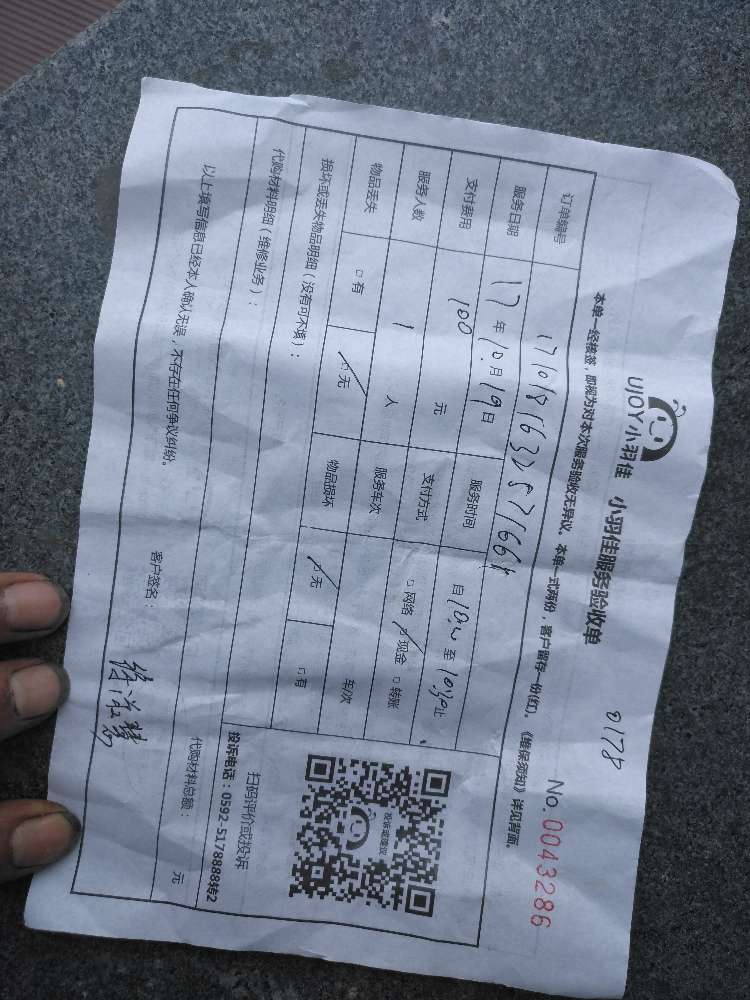 UJOY小羽佳 小羽佳服务验收单
0178
No.0043286
本单一经核签，即视为对本次服务验收无异议。本单一式两份，客户留存一份(红)。《维保须知》详见背面。
订单编号
服务日期 17年10月19日 服务时间 自10:00至10:30止
支付费用 100 元 支付方式 □网络 □现金 □转账
服务人数 1 人 服务车次 车次
物品丢失 □有 □无 物品损坏 □无 □有
损坏或丢失物品明细（没有可不填）：
投诉或建议
扫码评价或投诉
投诉电话：0592-5178888转2
代购材料明细（维修业务）： 代购材料总额： 元
以上填写信息已经本人确认无误，不存在任何争议纠纷。
客户签名：